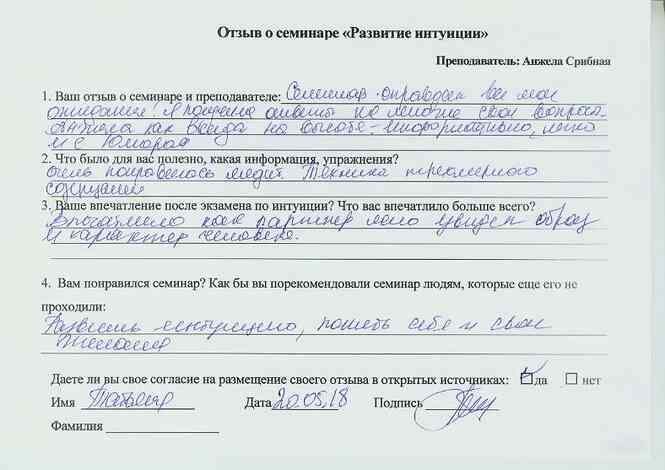 Отзыв о семинаре «Развитие интуиции»
Преподаватель: Анжела Срибная
1. Ваш отзыв о семинаре и преподавателе: Семинар оправдал все мои
ожидания! Я получила ответы на многие свои вопросы.
как всегда на высоте - информативно, легко
и с юмором
2. Что было для вас полезно, какая информация, упражнения?
очень понравилась медит. Техника трехмерного
3. Ваше впечатление после экзамена по интуиции? Что вас впечатлило больше всего?
Впечатлило как партнер ясно увидел образ
и характер человека.
4. Вам понравился семинар? Как бы вы порекомендовали семинар людям, которые еще его не
проходили:
Развить интуицию, понять себя и свои
желания
Даете ли вы свое согласие на размещение своего отзыва в открытых источниках: да нет
Имя Татьяна Дата 20.05.18 Подпись
Фамилия